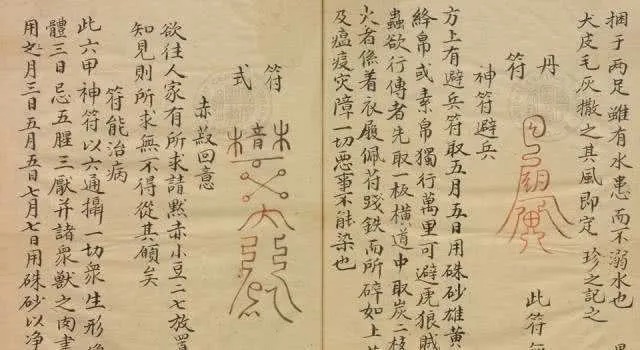 捆于兩足雖有水患而不溺水也
犬皮毛灰撒之其風即定 珍之記之
丹
符
此符無
神符避兵
方上有避兵符取五月五日用硃砂雄黃
絳帛或素帛獨行萬里可避虎狼賊
蟲欲行傳者先取一板橫道中取炭二枝
火者係着衣履佩符踐鐵而所碎如上
及瘟疫災障一切惡事不能染也
符
式
赤菽回意
欲往人家有所求請默赤小豆二七放置
知見則所求無不得從其願矣
符能治病
此六甲神符以六通攝一切衆生形
體三日忌五腥三厭并諸衆獸之肉書
用之月三日五月五日七月七日用硃砂以净